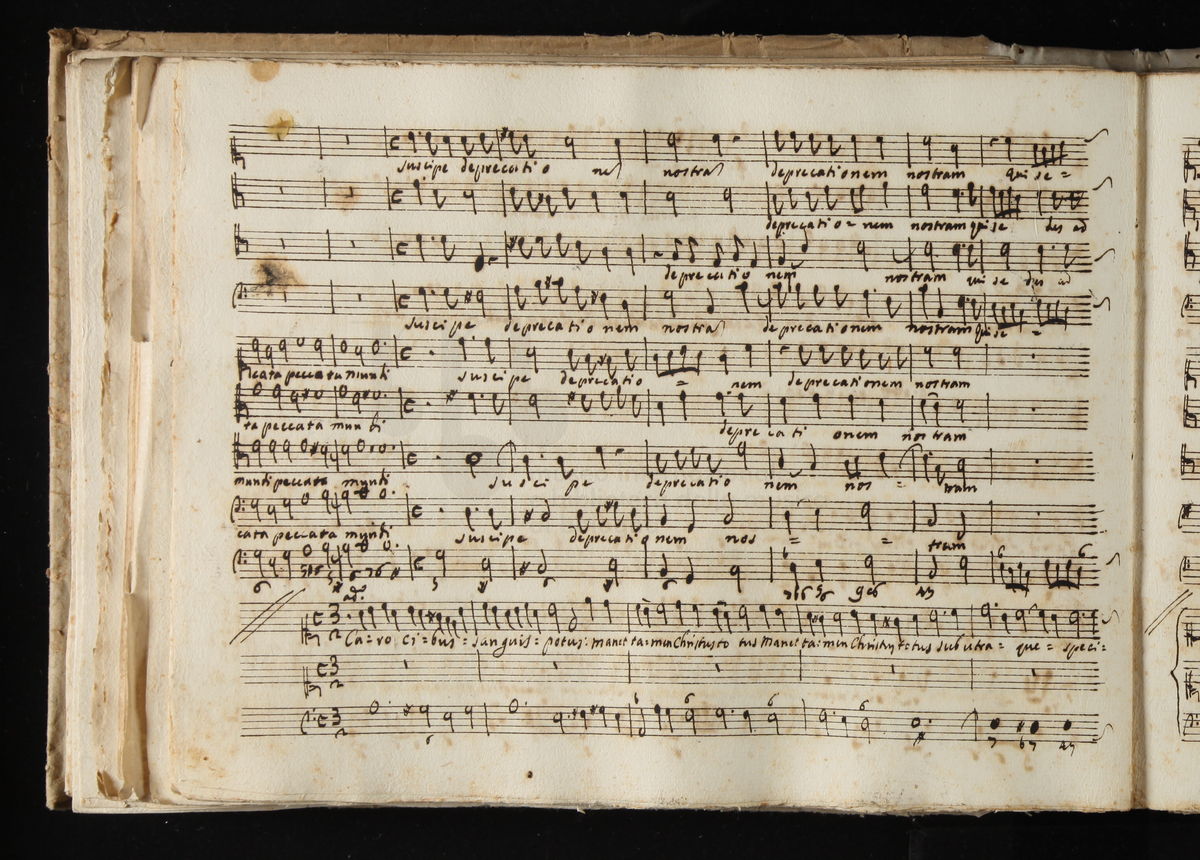 suscipe deprecatio ne nostra deprecationem nostram qui se =
deprecatio = nem nostram qui se des ad
deprecatio nem nostram qui se des ad
suscipe deprecatio nem nostra deprecationem nostram qui se =
icata peccata mundi suscipe deprecatio = nem deprecationem nostram
ta peccata mun di depreca ti onem nostram
mundi peccata mundi suscipe deprecatio nem nos = tram
cata peccata mundi suscipe deprecatio nem nos = = tram
Ca = ro ci = bus = sanguis = potus: manet ta = men Christus to tus manet ta = men Christus totus sub utra = que = speci =